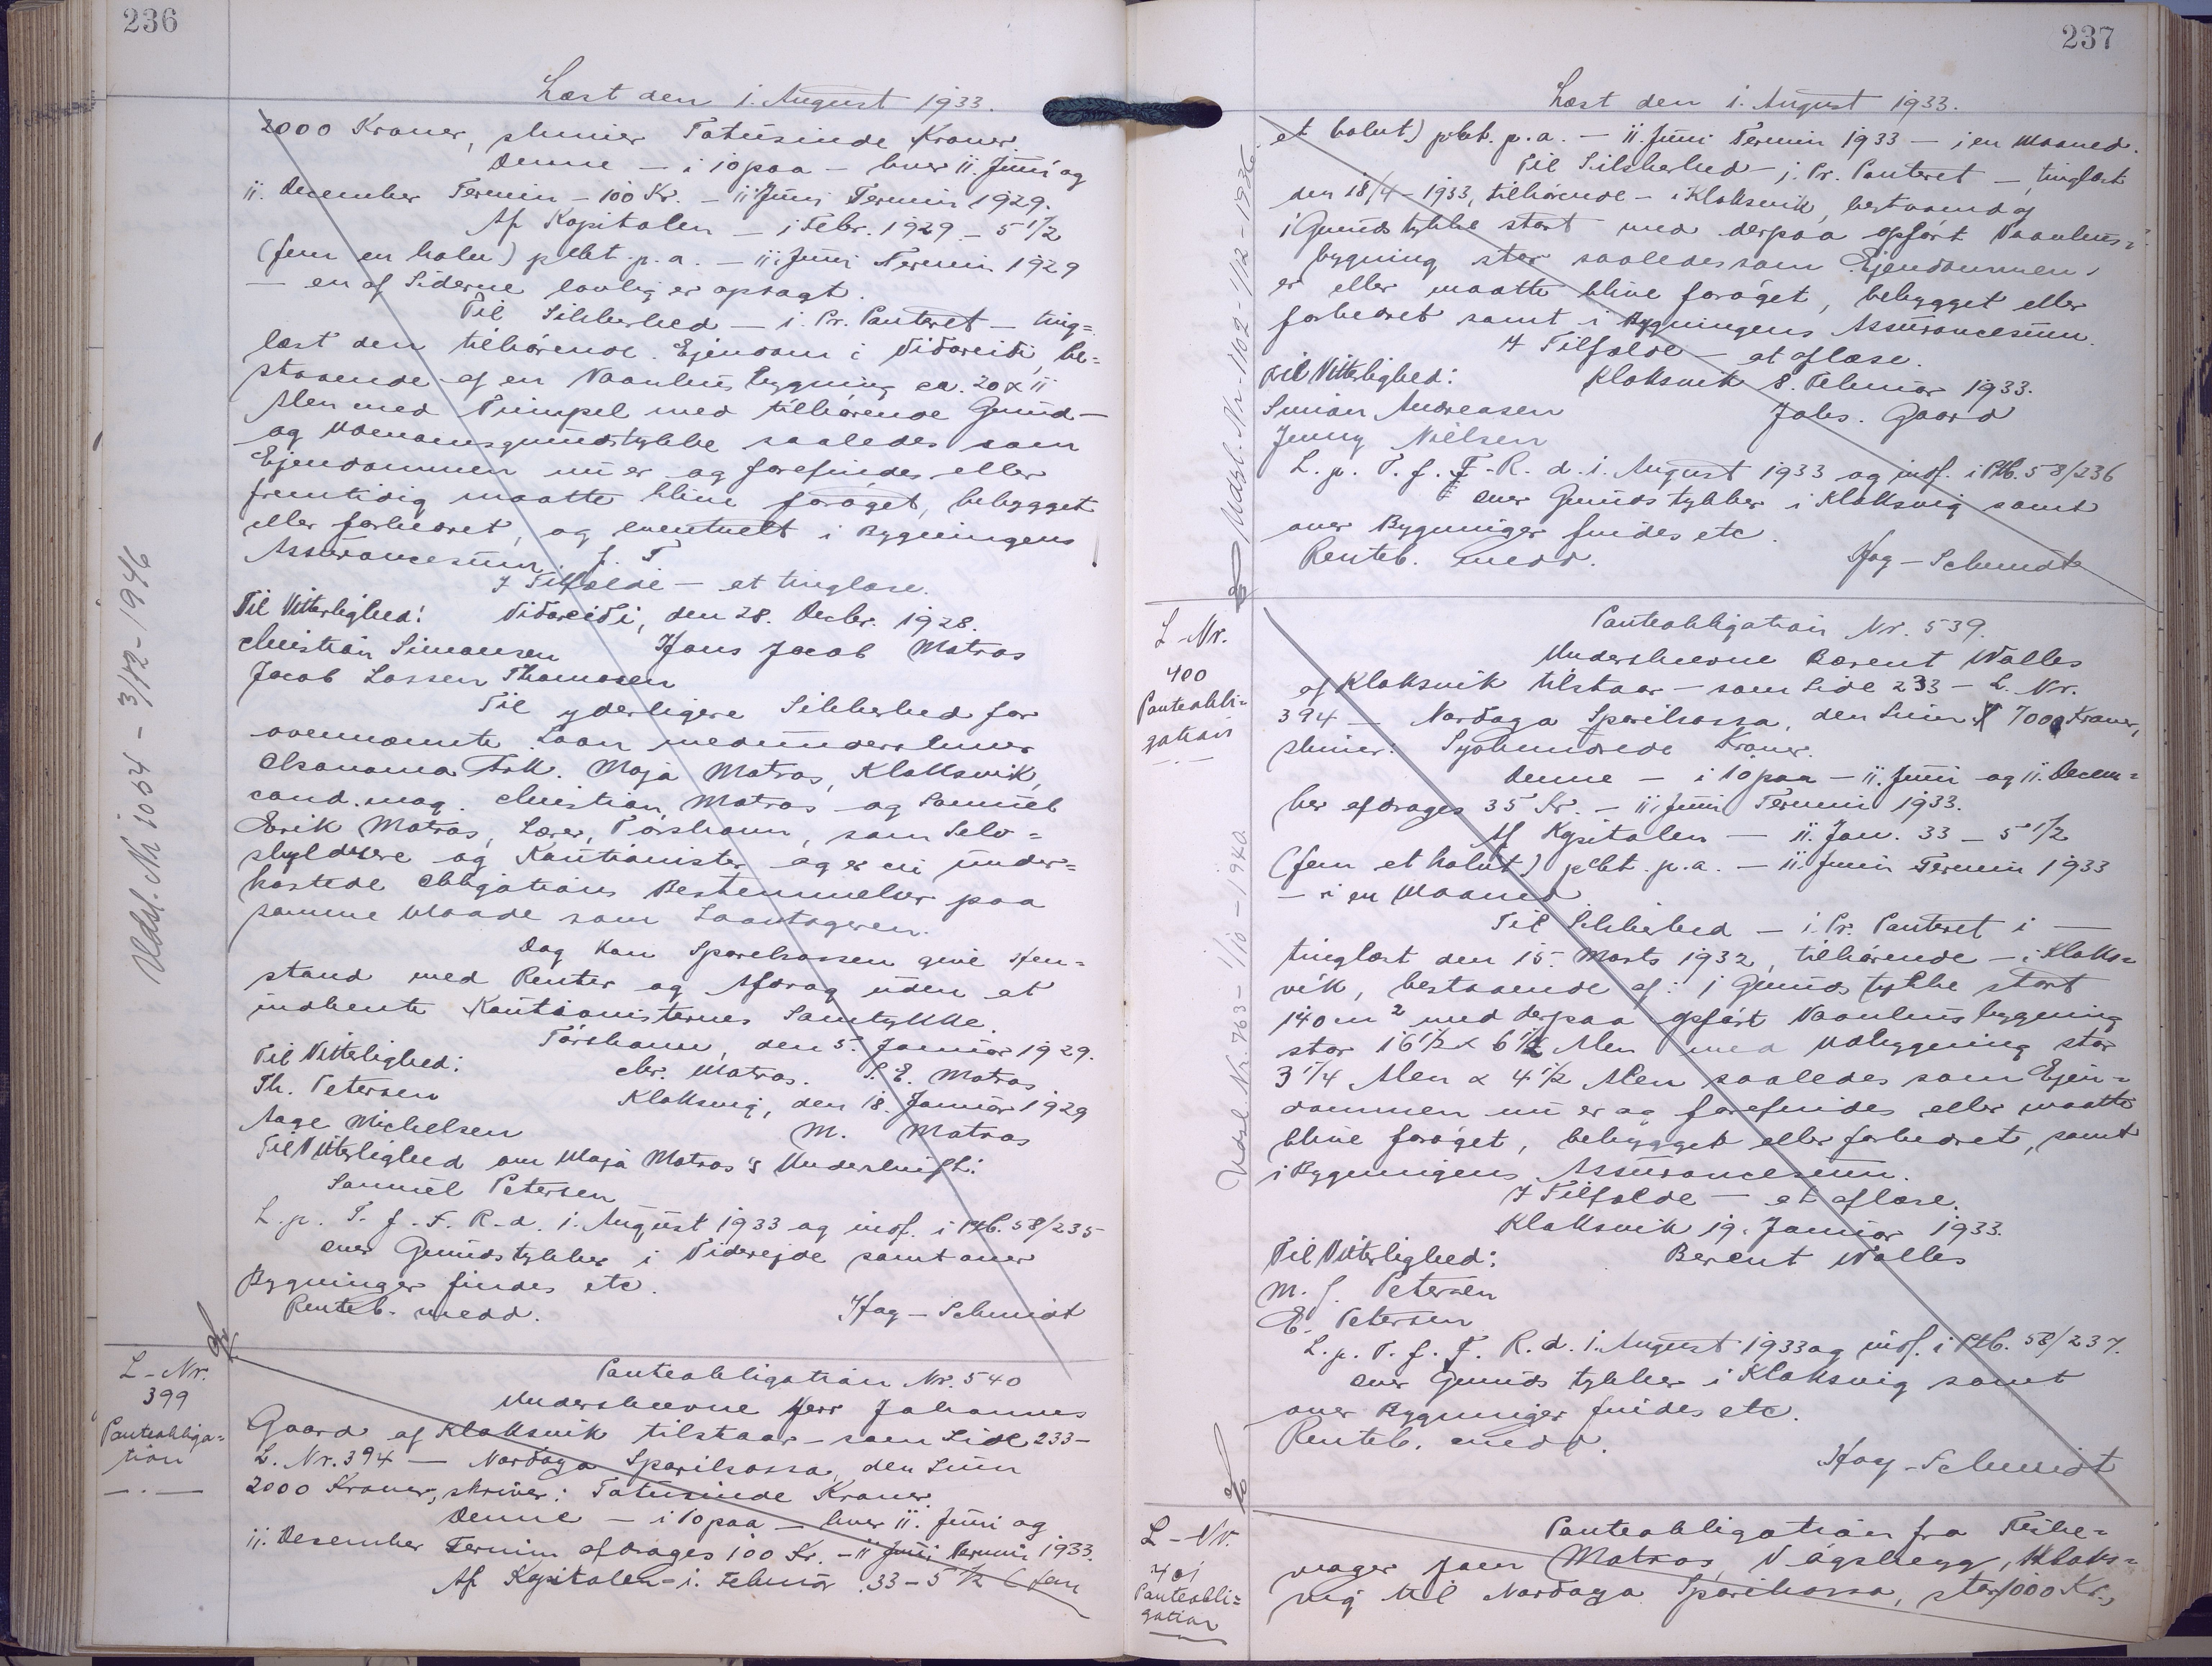 236
Læst den 1. August 1933.
2000 Kroner, skriver Totusinde Kroner.
Denne – i 10 paa – hver 11. Juni og
11. December Termin – 100 Kr. – 11 Juni Termin 1929.
Af Kapitalen – 1 Febr. 1929 – 5 1/2
(fem en halv) pCt. p.a. – 11. Juni Termin 1929
– en af Siderne lovlig er opsagt.
Til Sikkerhed – i. Pr. Panteret – ting=
læst den tilhørende Ejendom i Viðareiði, be=
staaende af en Vaanhusbygning ca. 20 x 11
Alen med tilhørende Grund–
og Udenomsgrundstykke saaledes som
Ejendommen nu er og forefindes eller
fremtidig maatte blive forøget, bebygget
eller forbedret, og eventuelt i Bygningens
Assurancesum. f. T
I Tilfælde – at tinglæse.
Til Vitterlighed! Viðareiði, den 28. Decbr. 1928.
Christian Simonsen Hans Jacob Matras
Jacob Lassen Thomasen
Til yderligere Sikkerhed for
ovennævnte Laan medunderskriver
Frk. Maja Matras, Klaksvik,
cand. mag. Christian Matras og Samuel
Erik Matras, Lærer, Tórshavn, som Selv=
skyldnere og Kautionister og er vi under=
kastede Obligations Bestemmelser paa
samme Maade som Laantageren.
Dog kan Sparekassen give Hen=
stand med Renter og Afdrag uden at
indhente Kautionisternes Samtykke.
Tórshavn, den 5. Januar 1929.
Til Vitterlighed: Chr. Matras. S. E. Matras
Th. Petersen Klaksvig, den 18. Januar 1929
Aage Michelsen M. Matras
Til Vitterlighed om Maja Matras's Underskrift:
Samuel Petersen
L. p. T. f. F. R. d. 1. August 1933 og indf. i Ptb. 58/235
over Grundstykker i Viderejde samt over
Bygninger findes etc.
Renteb. medd. Hag – Schmidt
Udsl. Nr 1054 – 3/12 – 1946
L – Nr.
399
Panteobliga=
tion
Panteobligation Nr. 540
Underskrevne Herr Johannes
Gaard af Klaksvik tilstaar – som Side 233 –
L. Nr. 394 – Norðoya Sparikassa, den Sum
2000 Kroner, skriver: Totusinde Kroner.
Denne – i 10 paa – hver 11. Juni og
11. Desember Termin afdrages 100 Kr. – 11 Juni Termin 1933.
Af Kapitalen – 1. Februar 33 – 5 1/2 (fem
237
Læst den 1. August 1933.
et halvt) pCt. p.a. – 11. Juni Termin 1933 – i en Maaned.
Til Sikkerhed – i. Pr. Panteret – tinglæst
den 18/4 – 1933, tilhørende – i Klaksvik, bestaaend af
1 Grundstykke stort med derpaa opført Vaanhus=
bygning stor saaledes som Ejendommen
er eller maatte blive forøget, bebygget eller
forbedret samt i Bygningens Assurancesum.
I Tilfælde – at aflæse.
Til Vitterlighed: Klaksvik 8. Februar 1933.
Simon Andreasen Johs. Gaard
Jenny Nielsen
L. p. T. f. F. R. d. 1. August 1933 og indf. i Ptb. 58/236
over Grundstykker i Klaksvig samt
over Bygninger findes etc.
Renteb. medd. Hag – Schmidt
Udsl. Nr. 1102 – 1/12 – 1936.
L – Nr.
400
Panteobli=
gation
Panteobligation Nr. 539.
Underskrevne Berent Walles
af Klaksvik tilstaar – som Side 233 – L. Nr.
394 – Norðoya Sparikassa, den Sum 700 Kroner,
skriver: Syvhundrede Kroner.
Denne – i 10 paa – 11. Juni og 11. Decem=
ber afdrages 35 Kr. – 11. Juni Termin 1933.
Af Kapitalen – 11. Jan. 33 – 5 1/2
(fem et halvt) pCt. p.a. – 11. Juni Termin 1933
– i en Maaned.
Til Sikkerhed – i. Pr. Panteret i –
tinglæst den 15. Marts 1932, tilhørende – i Klaks=
vik, bestaaende af: 1 Grundstykke stort
140 m² med derpaa opført Vaanhusbygning
stor 16 1/2 x 6 1/2 Alen med Udbygning stor
3 1/4 Alen x 4 1/2 Alen saaledes som Ejen=
dommen nu er og forefindes eller maatte
blive forøget, bebygget eller forbedret, samt
i Bygningens Assurancesum.
I Tilfælde – at aflæse.
Klaksvik 19. Januar 1933.
Til Vitterlighed: Berent Walles
M. J. Petersen
E. Petersen
L. p. T. f. F. R. d. 1. August 1933 og indf. i Ptb. 58/237.
over Grundstykker i Klaksvig samt
over Bygninger findes etc.
Renteb. medd.
Hag – Schmidt
Udsl. Nr. 763 – 1/10 – 1940
L – Nr.
401
Panteobli=
gation
Panteobligation fra
Matras, Vágsbygg, Klaks=
vig til Norðoya Sparikassa, stor 1000 Kr.,